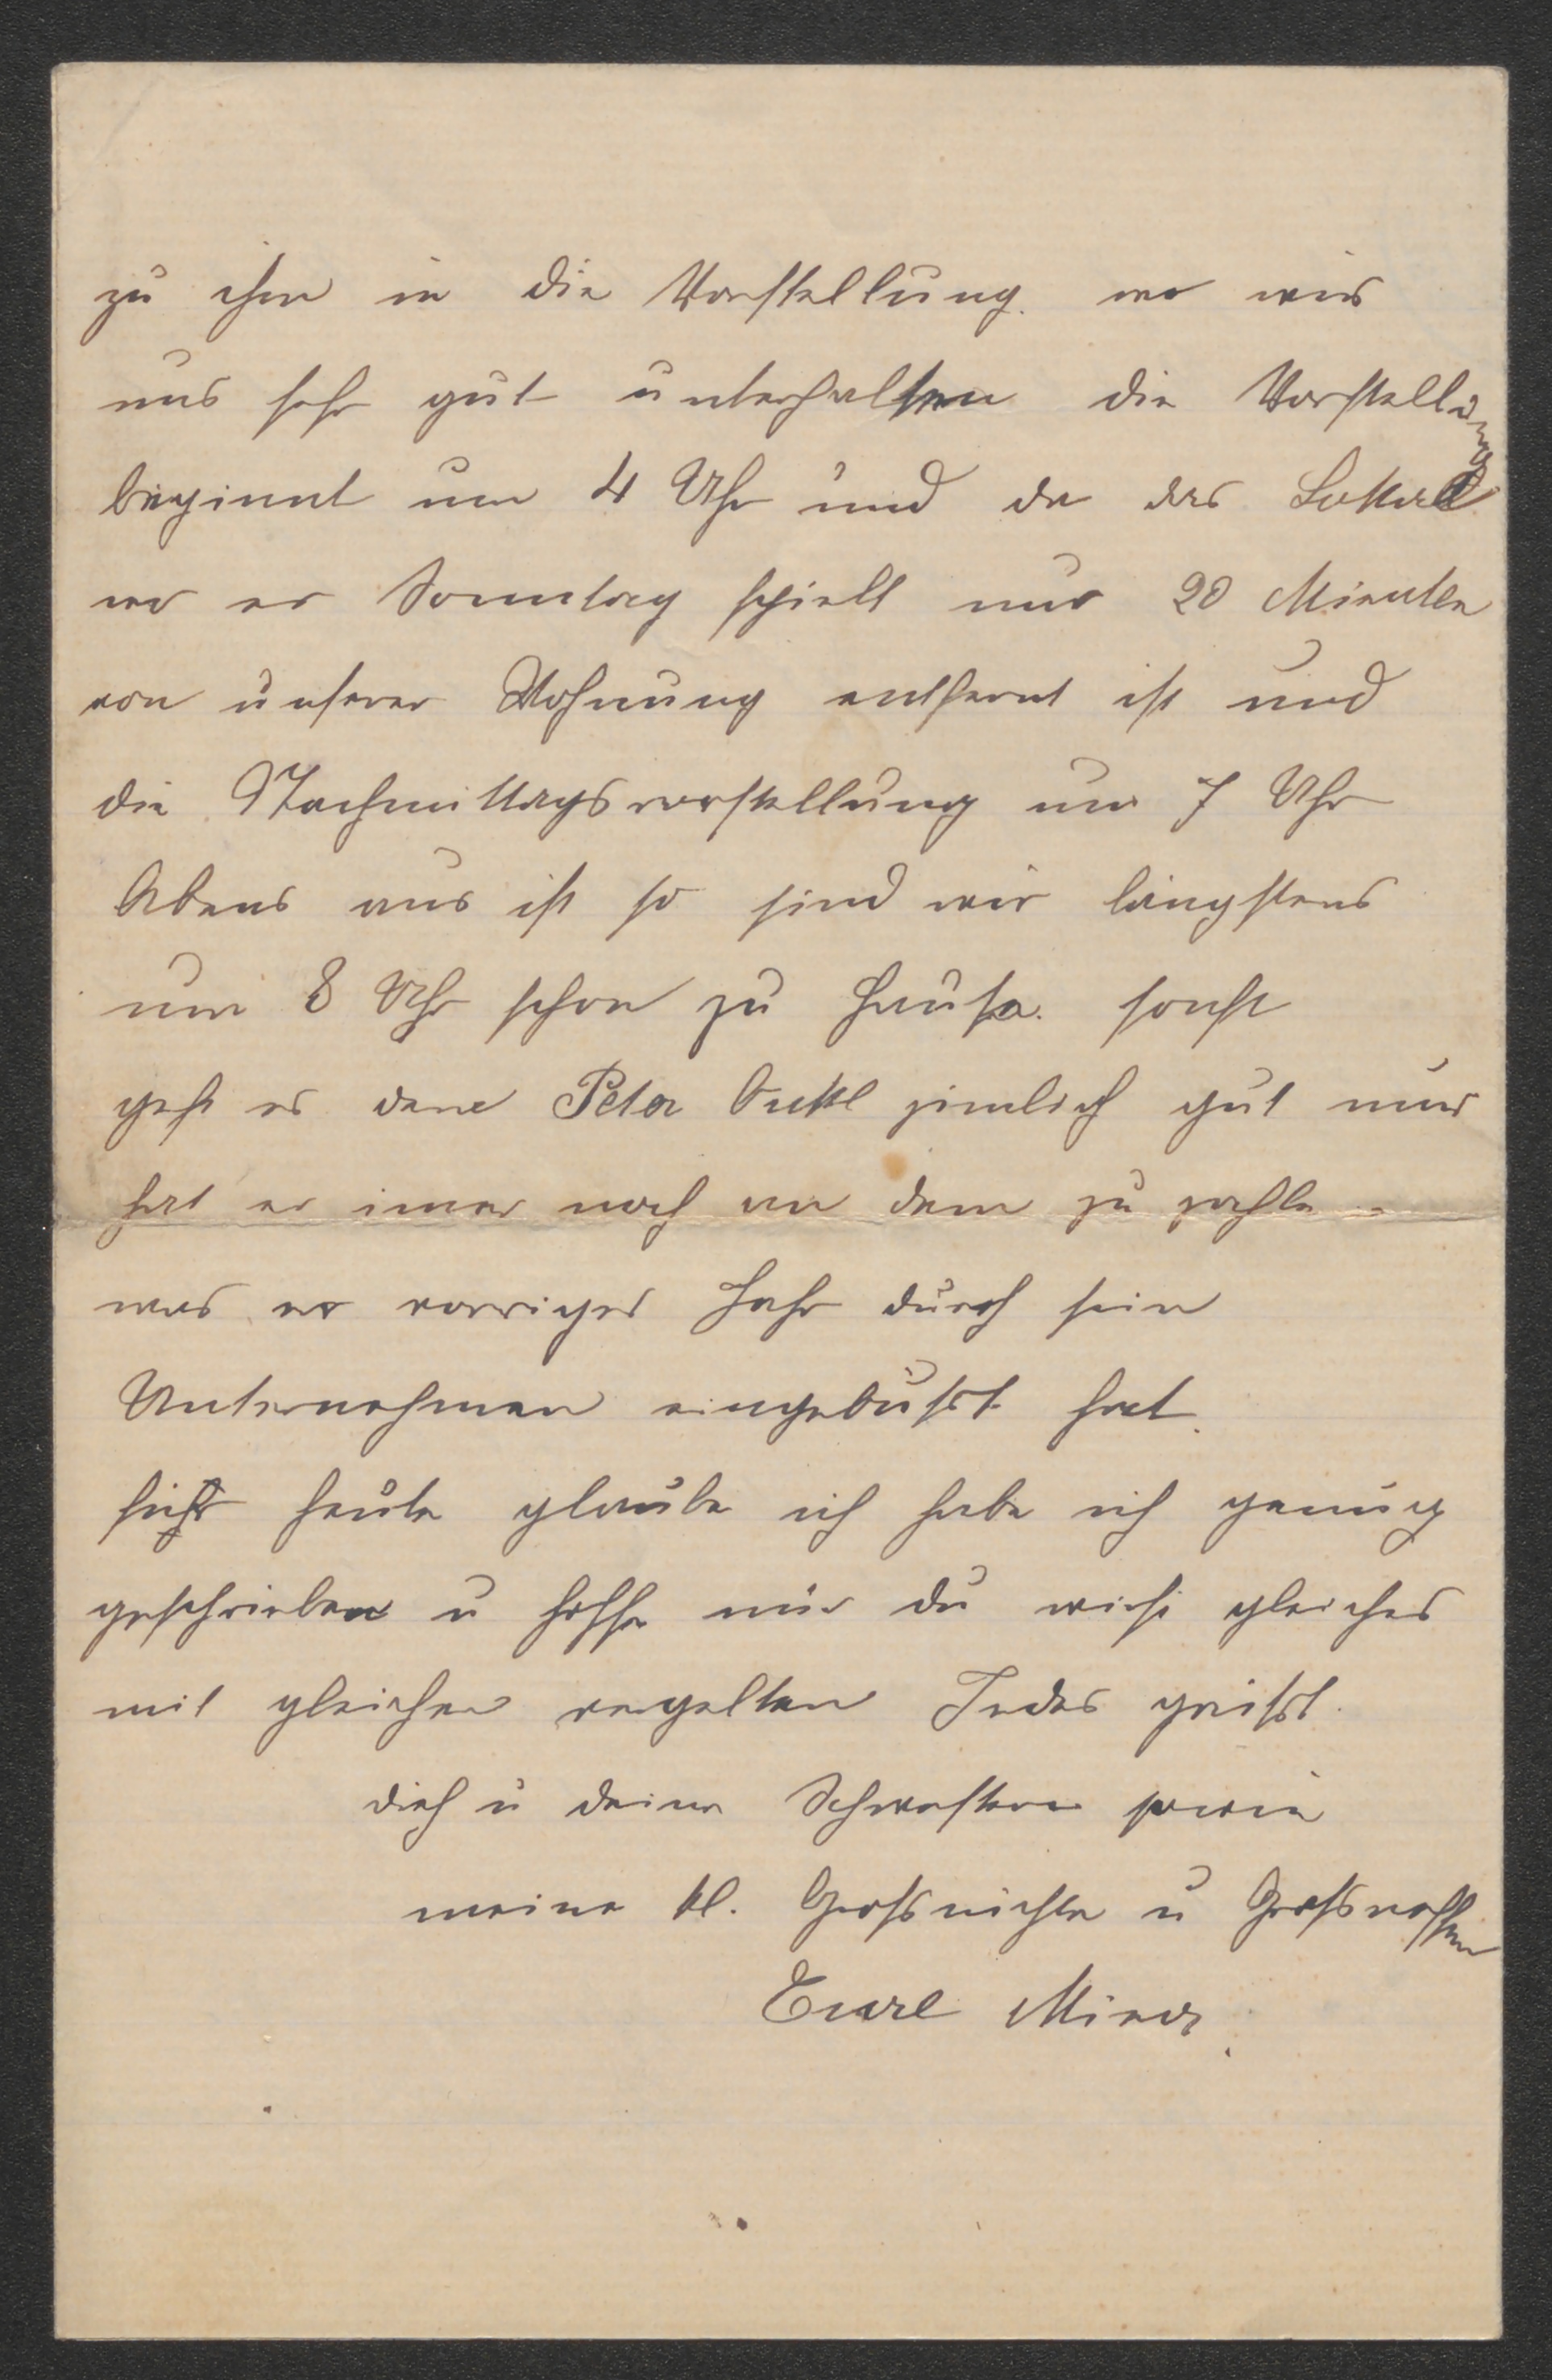 zu ihm in die Vorstellung. wo wir
uns sehr gut unterhalten die Vorstellung
beginnt um 4 Uhr und da das Lokal
wo er Sonntag spielt nur 20 Minuten
von unserer Wohnung entfernt ist und
die Nachmittagsvorstellung um 7 Uhr
Abens aus ist so sind wir längstens
um 8 Uhr schon zu Hause. sonst
geht es dem Peter Onkl zimlich gut nur
hat er imer noch an dem zu zahlen
was er vorriges Jahr durch sein
Unternehmen eingebüsst hat.
heute glaube ich habe ich genug
geschrieben u hoffe nur du wirst gleiches
mit gleichen vergelten Indes grüsst
dich u deine Schwestern sowie
meine kl. Grossnichte u Grossneffen
Eure Minna